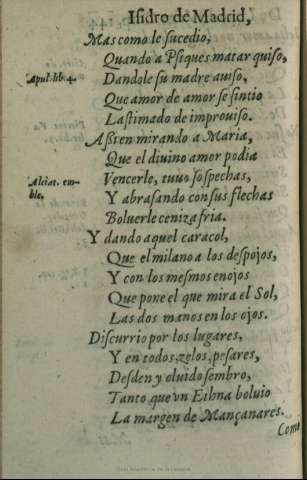 Isidro de Madrid,
Mas como le sucedio,
Quando a Psiques matar quiso,
Apul. lib. 4.
Dandole su madre auiso,
Que amor de amor se sintio
Lastimado de improuiso.
Assi en mirando a Maria,
Que el diuino amor podia
Alciat. em-
ble.
Vencerle, tuuo sospechas,
Y abrasando con sus flechas
Boluerle ceniza fria.
Y dando aquel caracol,
Que el milano a los despojos,
Y con los mesmos enojos
Que pone el que mira el Sol,
Las dos manos en los ojos.
Discurrio por los lugares,
Y en todos, zelos, pesares,
Desden y oluido sembro,
Tanto que vn Ethna boluio
La margen de Mançanares.
Como